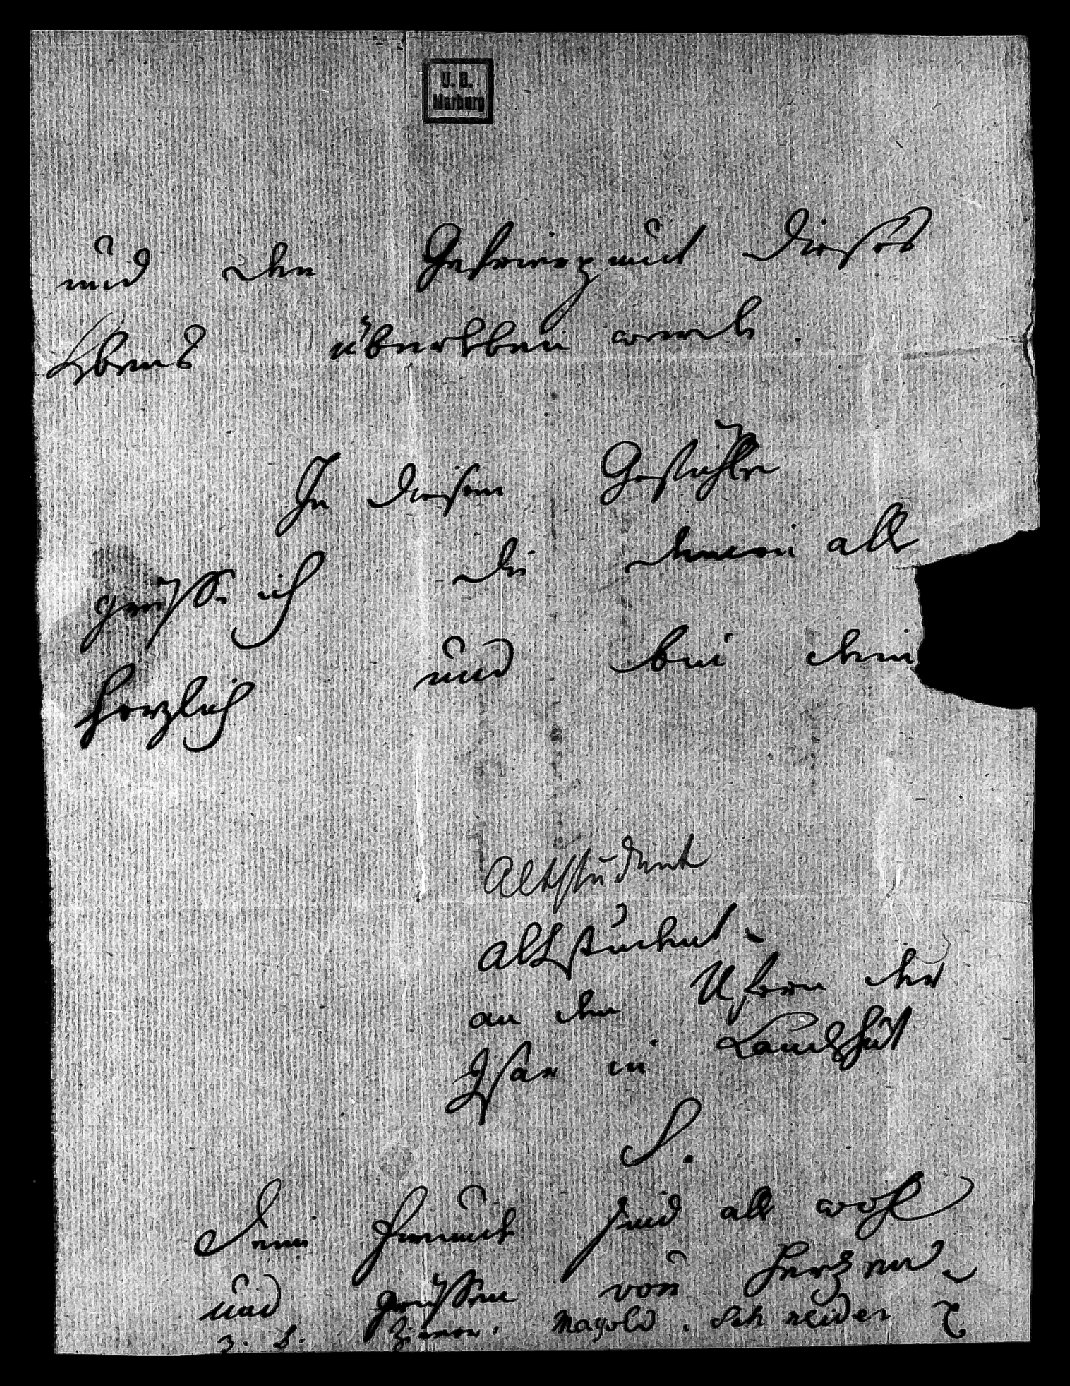 U. B.
Marburg
und den Gefrierpunct dieses
Lebens überleben werde.
In diesem Gefühle
grüsse ich die deinen alle
herzlich und bin dein
Altstudent
Altstudent
an den Ufern der
Isar in Landshut
S.
Deine Freunde sind alle wohl
und grüssen von Herzen
z. B. Zimer. Magold. Schneider